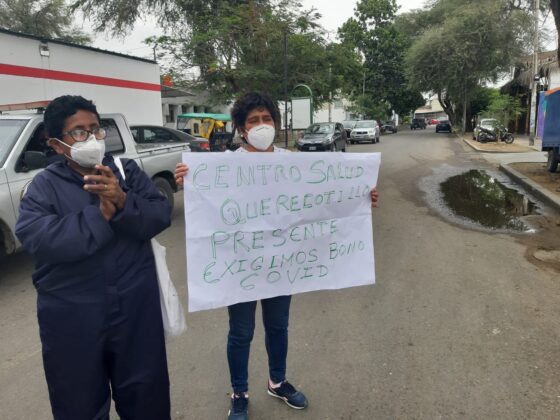 CENTRO SALUD
QUERECOTILLO
PRESENTE
EXIGIMOS BONO
COVID